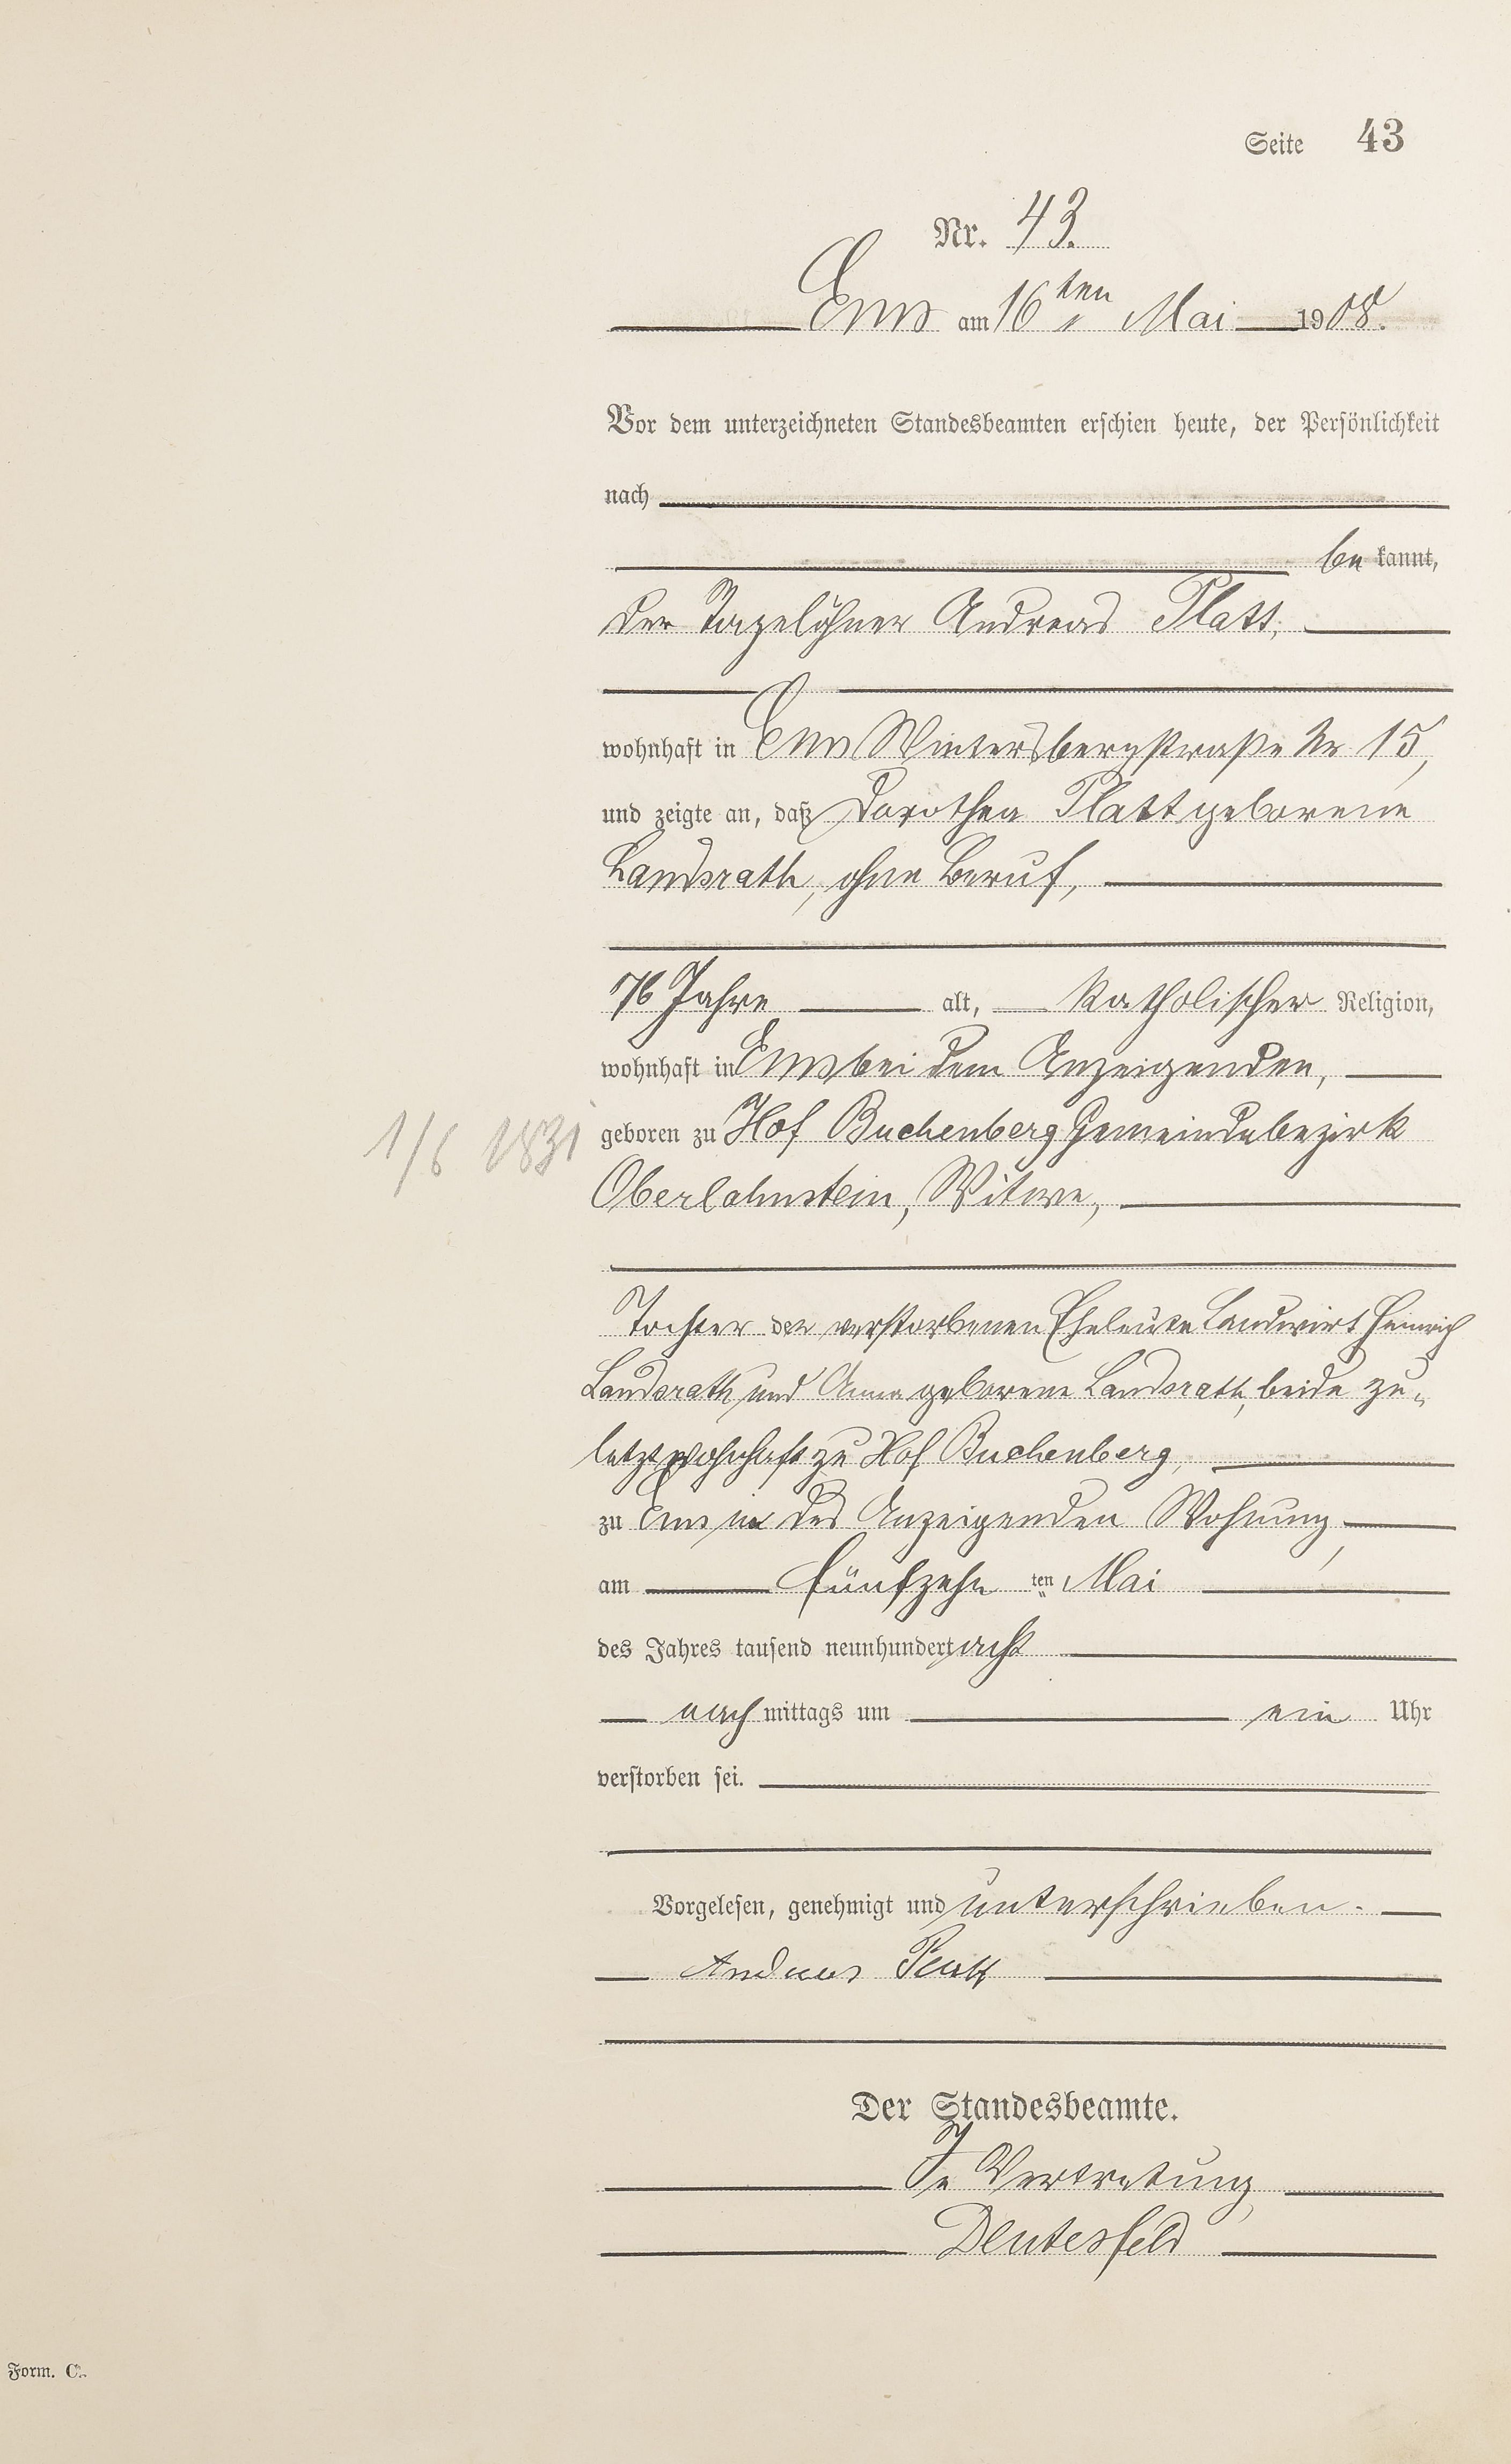 Seite 43
Nr. 43.
Ems am 16ten Mai 1908.
Vor dem unterzeichneten Standesbeamten erschien heute, der Persönlichkeit
nach
bekannt,
der Tagelöhner Andreas Platt,
wohnhaft in Ems Wintersbergstraße Nr 15,
und zeigte an, daß Dorothea Platt geborene
Landsrath, ohne Beruf,
76 Jahre alt, katholischer Religion,
wohnhaft in Ems bei dem Anzeigenden,
1/6 1831
geboren zu Hof Buchenberg Gemeindebezirk
Oberlahnstein, Witwe,
Tochter der verstorbenen Eheleute Landwirt Heinrich
Landsrath und Anna geborene Landsrath, beide zu-
letzt wohnhaft zu Hof Buchenberg,
zu Ems in des Anzeigenden Wohnung,
am fünfzehn ten Mai
des Jahres tausend neunhundert acht
nachmittags um ein Uhr
verstorben sei.
Vorgelesen, genehmigt und unterschrieben.
Andreas Platt
Der Standesbeamte.
In Vertretung
Deutesfeld
Form. C.